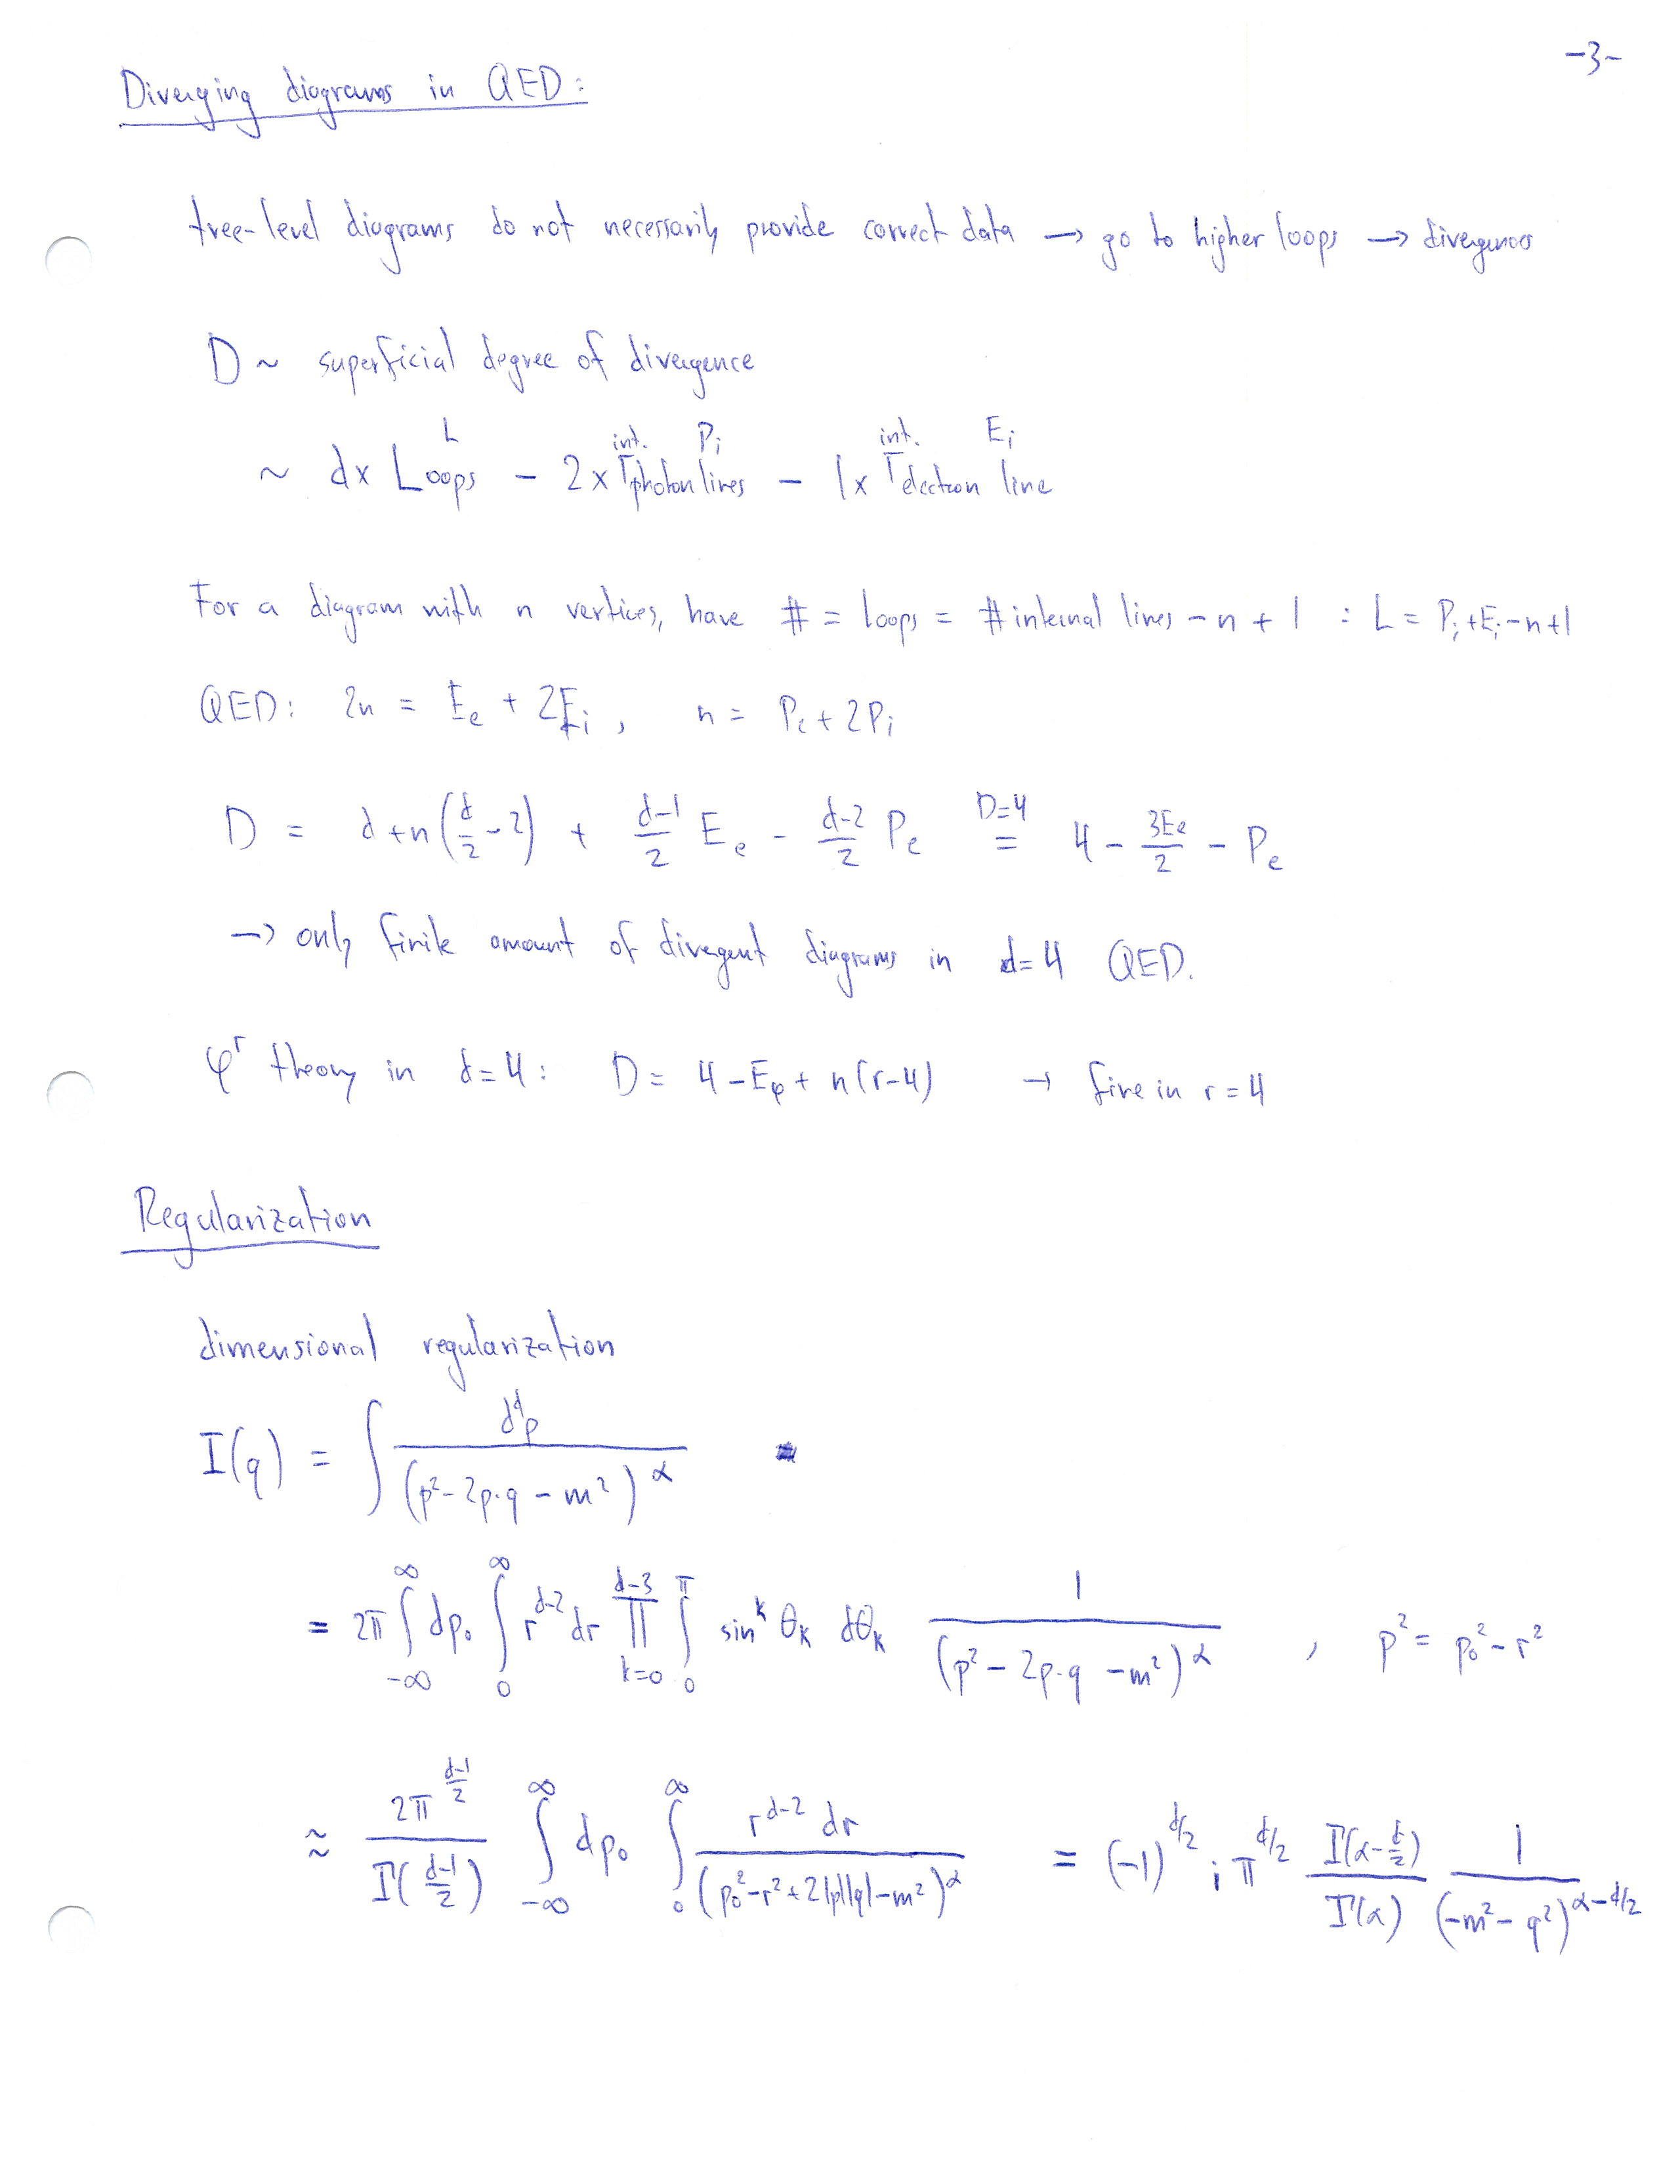 -3-
Diverging diagrams in QED:
tree-level diagrams do not necessarily provide correct data → go to higher loops → divergences
D ~ superficial degree of divergence
~ d x Loops (L) - 2 x int. photon lines (P_i) - 1 x int. electron line (E_i)
For a diagram with n vertices, have # = loops = # internal lines - n + 1 : L = P_i + E_i - n + 1
QED: 2n = E_e + 2E_i , n = P_e + 2P_i
D = d + n(d/2 - 2) + (d-1)/2 E_e - (d-2)/2 P_e =^{D=4} 4 - 3E_e/2 - P_e
→ only finite amount of divergent diagrams in d=4 QED.
φ^r theory in d=4: D = 4 - E_φ + n(r-4) → fine in r = 4
Regularization
dimensional regularization
I(q) = ∫ d^d p / (p² - 2p·q - m²)^α
= 2π ∫_{-∞}^{∞} dp_0 ∫_0^∞ r^{d-2} dr ∏_{k=0}^{d-3} ∫_0^π sin^k θ_k dθ_k 1 / (p² - 2p·q - m²)^α , p² = p_0² - r²
≈ 2π^{(d-1)/2} / Γ((d-1)/2) ∫_{-∞}^{∞} dp_0 ∫_0^∞ r^{d-2} dr / (p_0² - r² + 2|p||q| - m²)^α = (-1)^{d/2} i π^{d/2} Γ(α - d/2) / Γ(α) 1 / (-m² - q²)^{α-d/2}